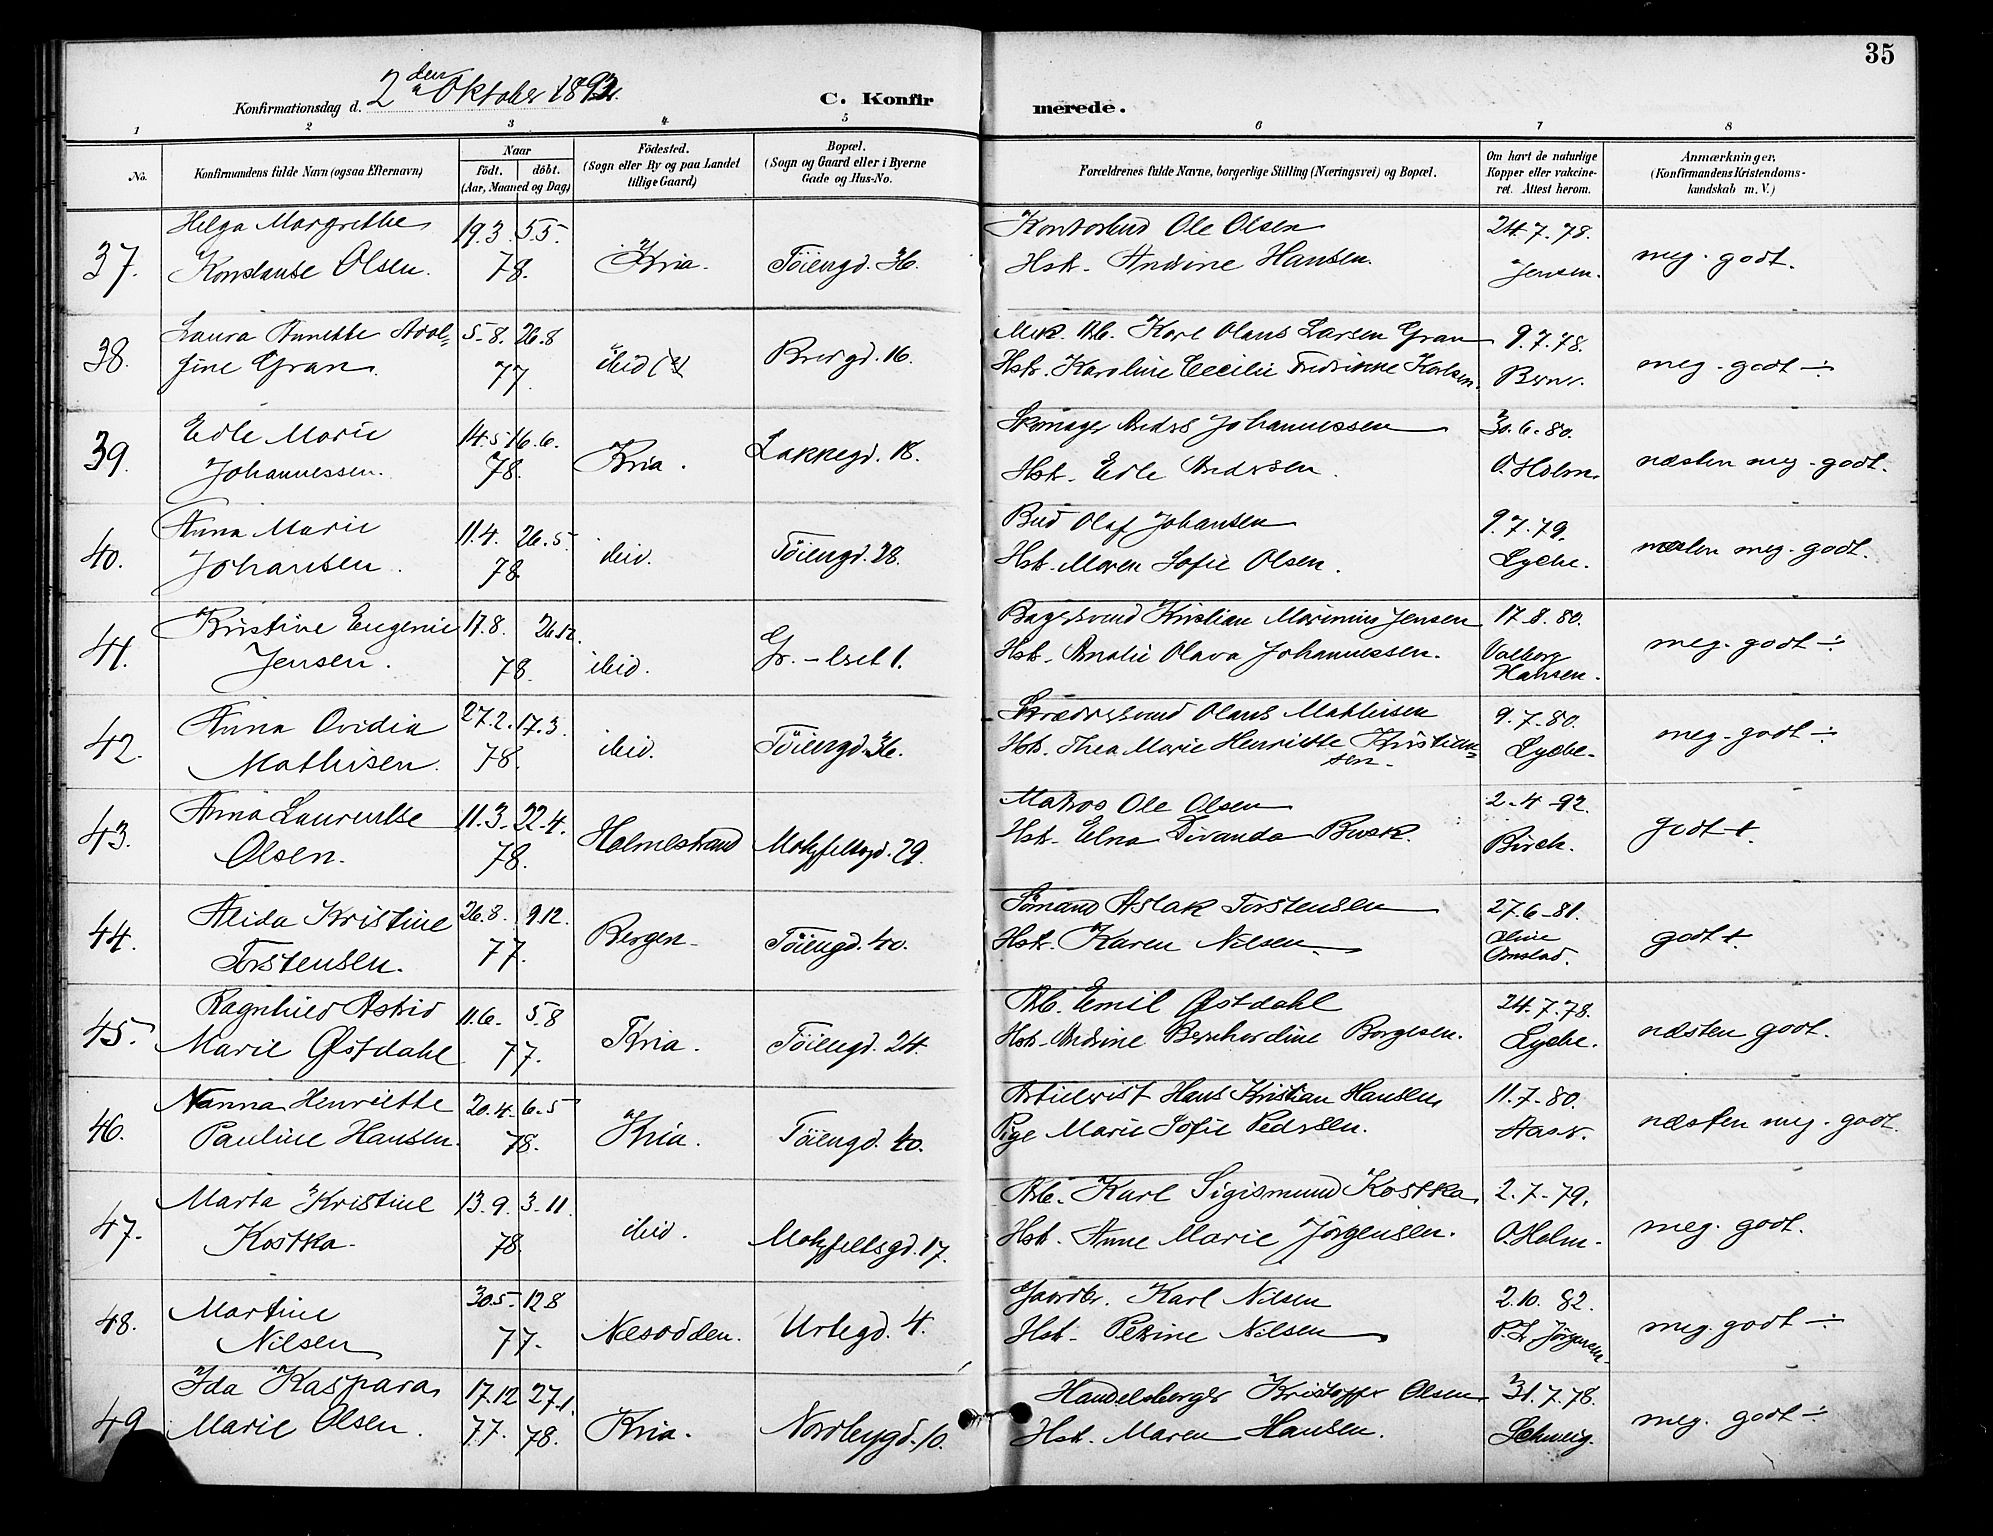 35
Konfirmationsdag d. 2den Oktober 1892.
C. Konfirmerede.
1 2 3 4 5 6 7 8
No.
Konfirmandens fulde Navn (ogsaa Efternavn)
Naar
födt. döbt.
(Aar, Maaned og Dag)
Födested.
(Sogn eller By og paa Landet
tillige Gaard)
Bopæl.
(Sogn og Gaard eller i Byerne
Gade og Hus-No.
Forældrenes fulde Navne, borgerlige Stilling (Næringsvei) og Bopæl.
Om havt de naturlige
Kopper eller vakcine-
ret. Attest herom.
Anmærkninger,
(Konfirmandens Kristendoms-
kundskab m. V.)
Helga Margrethe 19.3. 5.5. Kontorbud Ole Olsen 24.7.78.
37. Konstanse Olsen. 78. Kria. Töiengd. 36. Hst. Andrine Hansen. Jensen. meg. godt.
Laura Annette Adol= 5.8. 26.8 Mek. Arb. Karl Olaus Larsen Gran 9.7.78.
38. fine Gran. 77. ibid Brergd. 16. Hst. Karoline Cecilie Fredrikke Karlsen. meg. godt ÷
Edle Marie 14.5 16.6. Skomager Andrs Johannessen 30.6.80.
39. Johannessen. 78. Kria. Lakkegd. 18. Hst. Edle Andersen. O. Holm. næsten meg. godt.
Anna Marie 11.4. 26.5. Bud Olaf Johansen 9.7.79.
40. Johansen. 78. ibid. Töiengd. 28. Hst. Maren Sofie Olsen. Lyche. næsten meg. godt.
Kristine Eugenie 17.8. 26.12. Bagersvend Kristian Marinius Jensen 17.8.80.
41. Jensen. 78. ibid. Gr.-lret 1. Hst. Amalie Olava Johannessen. Valborg
Hansen. meg. godt ÷
Anna Ovidia 27.2. 17.3. Skrædersvend Olaus Mathisen 9.7.80.
42. Mathisen. 78. ibid. Töiengd. 36. Hst. Thea Marie Henriette Kristian=
sen. Lyche. meg. godt ÷
Anna Laurentse 11.3. 22.4. Matros Ole Olsen 2.4.92.
43. Olsen. 78. Holmestrand Motzfeltsgd. 29. Hst. Elna Divanda Busk. Birch. godt +.
Alida Kristine 26.8. 9.12. Sömand Aslak Torstensen 27.6.81.
44. Torstensen. 77. Bergen. Töiengd. 40. Hst. Karen Nilsen. godt +.
Ragnhild Astrid 11.6. 5.8 Arb. Emil Østdahl 24.7.78.
45. Marie Østdahl 77. Kria. Töiengd. 24. Hst. Andrine Bernhardine Borgesen. Lyche. næsten godt.
Nanna Henriette 20.4. 6.5 Artilerist Hans Kristian Hansen, 11.7.80.
46. Pauline Hansen. 78. Kria. Töiengd. 40. Pige Marie Sofie Pedrsen. næsten meg. godt.
Marta Kristine 13.9. 3.11. Arb. Karl Sigismund Kostka, 2.7.79.
47. Kostka. 78. ibid. Motzfeltsgd. 17. Hst. Anne Marie Jörgensen. O. Holm. meg. godt.
Martine 30.5. 12.8 Gaardbr. Karl Nilsen 2.10.82.
48. Nilsen 77. Nesodden. Urtegd. 4. Hst. Petrine Nilsen P. L. Jörgensen. meg. godt ÷
Ida Kaspara 17.12 27.1. Handelsborger Kristoffer Olsen 31.7.78.
49 Marie Olsen. 77. 78. Kria. Nordbygd. 10. Hst. Maren Hansen. Schweig. meg. godt ÷